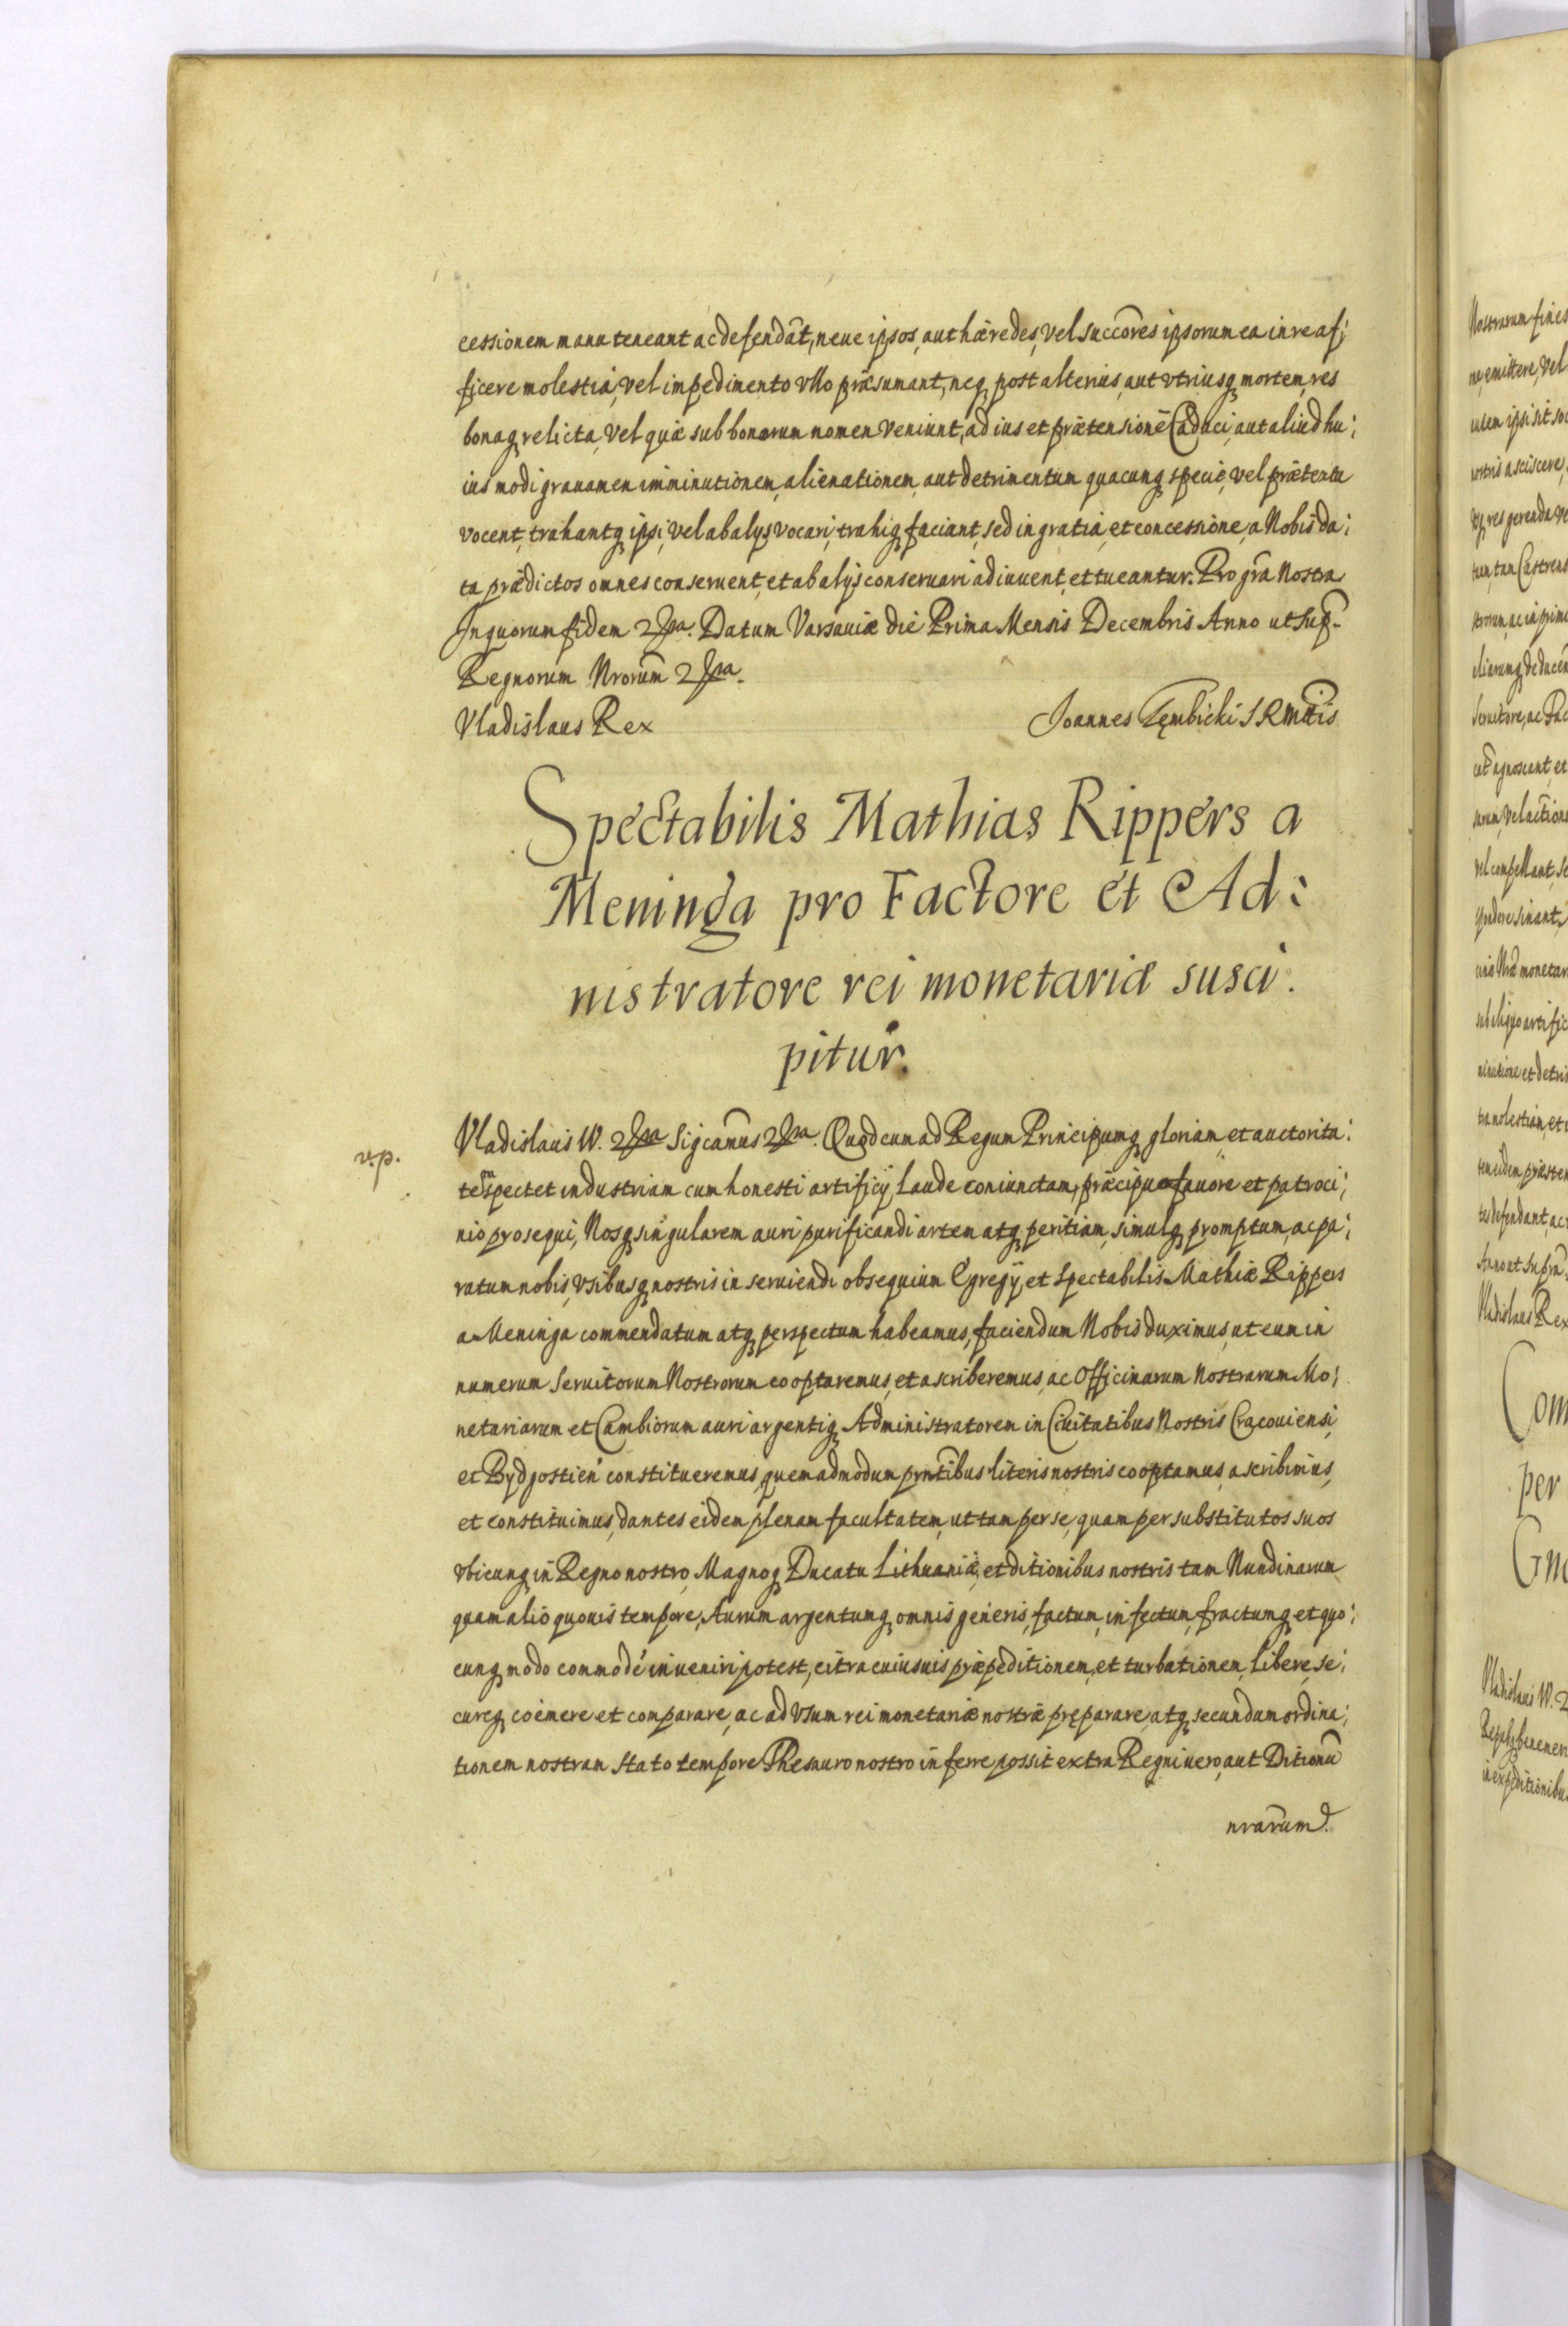 cessionem manuteneant ac defendāt, neue ipsos, aut hæredes, vel succōres ipsorum ea in re af;
ficere molestia, vel impedimento vllo præsumant, neq, post alterius, aut vtriusq mortem, res
bonaq relicta, vel quæ sub bonorum nomen veniunt, ad ius et prætensionē Caduci, aut aliud hu;
ius modi grauamen imminutionem, alienationem, aut detrimentum quacunq specie, vel prætextu
vocent, trahantq ipsi, vel ab alijs vocari, trahiq faciant, sed in gratia, et concessione, a Nobis da;
ta prædictos omnes conseruent, et ab alijs conseruari adiuuent, et tueantur. Pro grā Nostra
In quorum fidem Datum Varsauiæ die Prima Mensis Decembris Anno ut sup̄
Regnorum Nrorūm
Vladislaus Rex Joannes Łęmbicki S R Mttis
Spectabilis Mathias Rippers a
Meninga pro Factore et Ad:
nistratore rei monetariæ susci.
pitur.
v.p.
Vladislaus W. Sigcamus Quod cum ad Regum Principumq gloriam et auctorita:
tem spectet industriam cum honesti artificij laude coniunctam, præcipuo fauore et patroci;
nio prosequi, Nosq singularem auri purificandi artem atq peritiam, simulq promptum, ac pa;
ratum nobis, vsibusq nostris in seruiendi obsequium Egregij, et Spectabilis Mathiæ Rippers
a Meninga commendatum atq perspectum habeamus, faciendum Nobis duximus, ut eum in
numerum Seruitorum Nostrorum cooptaremus, et ascriberemus, ac Officinarum Nostrarum Mo;
netariarum et Cambiorum auri argentiq Administratorem in Ciuitatibus Nostris Cracouiensi,
et Bydgostien̄ constitueremus, quemadmodum pn̄tibus literis nostris cooptamus, ascribimus,
et constituimus, dantes eidem plenam facultatem, ut tam per se, quam per substitutos suos
vbicunq in Regno nostro, Magnoq Ducatu Lithuaniæ, et ditionibus nostris tam Nundinarum
quam alio quouis tempore, Aurum argentumq omnis generis, factum, infectum, fractumq et quo;
cunq modo commodé inueniri potest, citra cuiusuis præpeditionem, et turbationem, libere, se;
cureq coëmere et comparare, ac ad vsum rei monetariæ nostræ pręparare, atq secundum ordina;
tionem nostram stato tempore Thesauro nostro inferre possit extra Regni uero, aut Ditionū
nrarūm